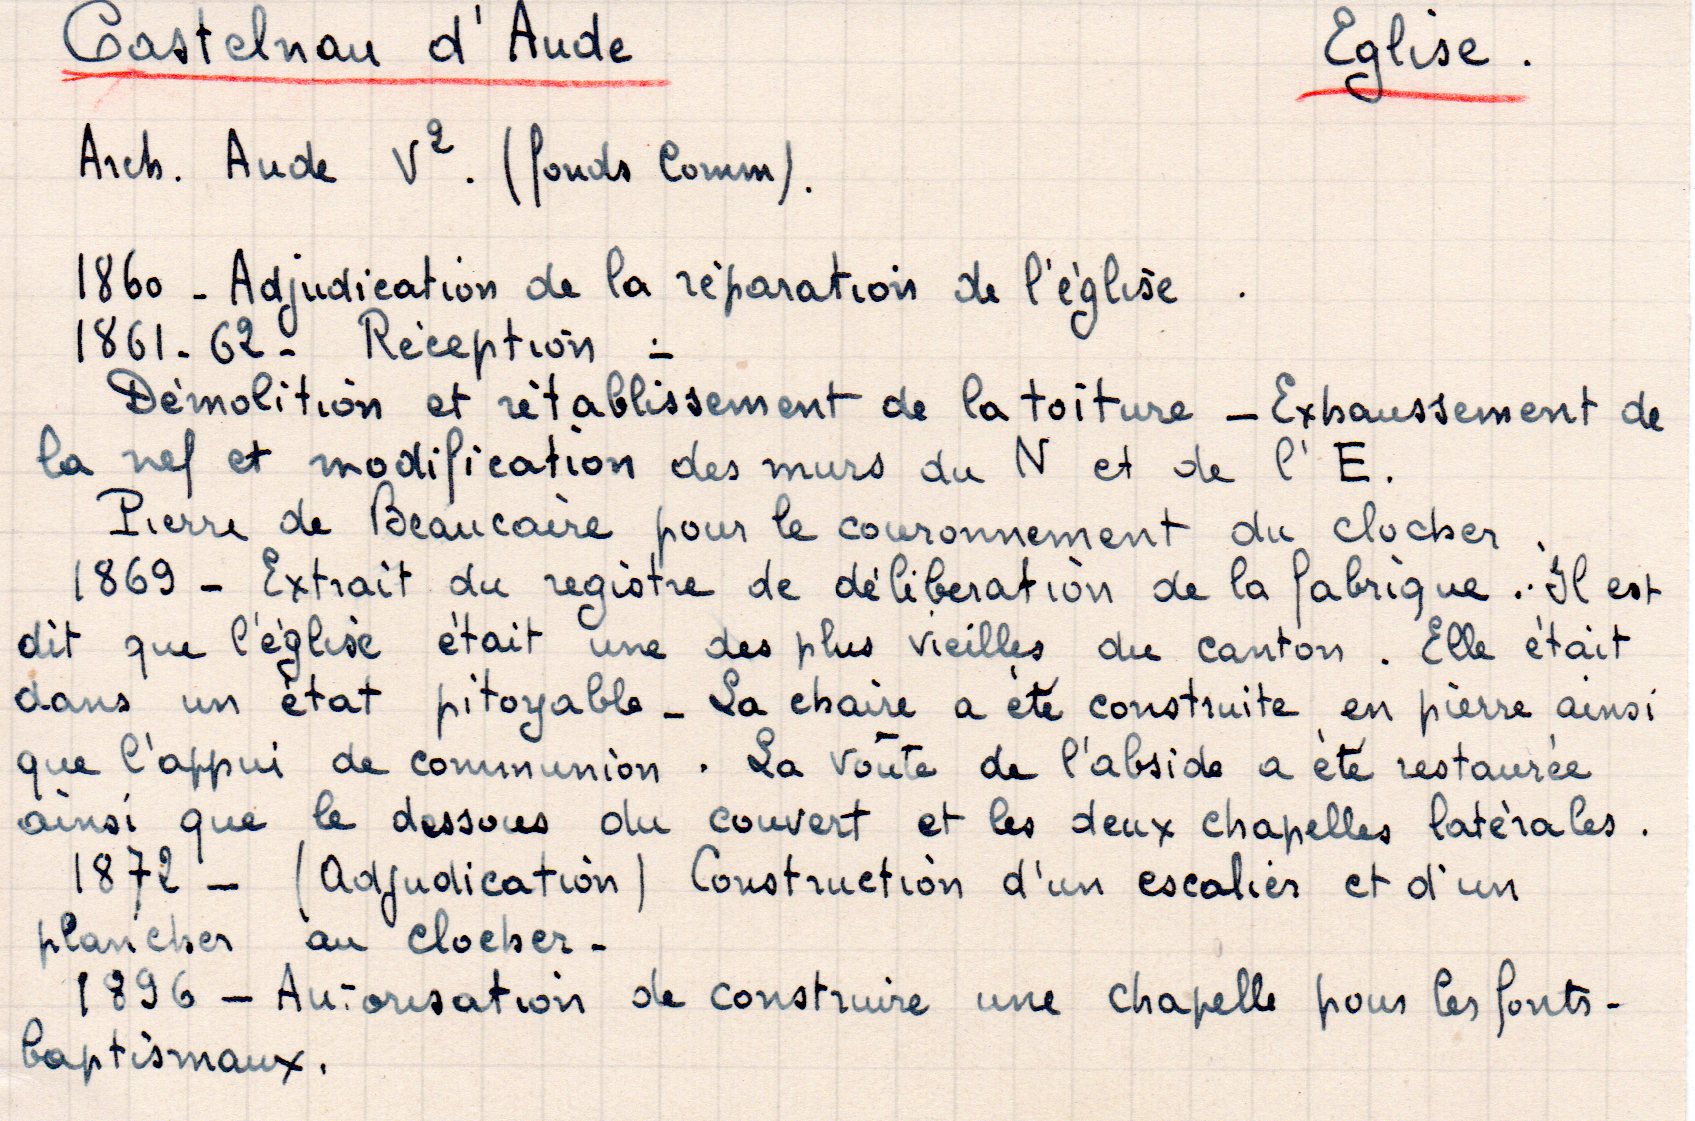 Castelnau d'Aude Eglise.
Arch. Aude V². (fonds Comm).
1860 - Adjudication de la réparation de l'église .
1861-62 - Réception :-
Démolition et rétablissement de la toiture - Exhaussement de
la nef et modification des murs du N et de l'E.
Pierre de Beaucaire pour le couronnement du clocher.
1869 - Extrait du registre de déliberation de la fabrique .. Il est
dit que l'église était une des plus vieilles du canton. Elle était
dans un état pitoyable - La chaire a été construite en pierre ainsi
que l'appui de communion. La voûte de l'abside a été restaurée
ainsi que le dessous du couvert et les deux chapelles latérales.
1872 - (Adjudication) Construction d'un escalier et d'un
plancher au clocher -
1896 - Autorisation de construire une chapelle pour les fonts-
baptismaux.